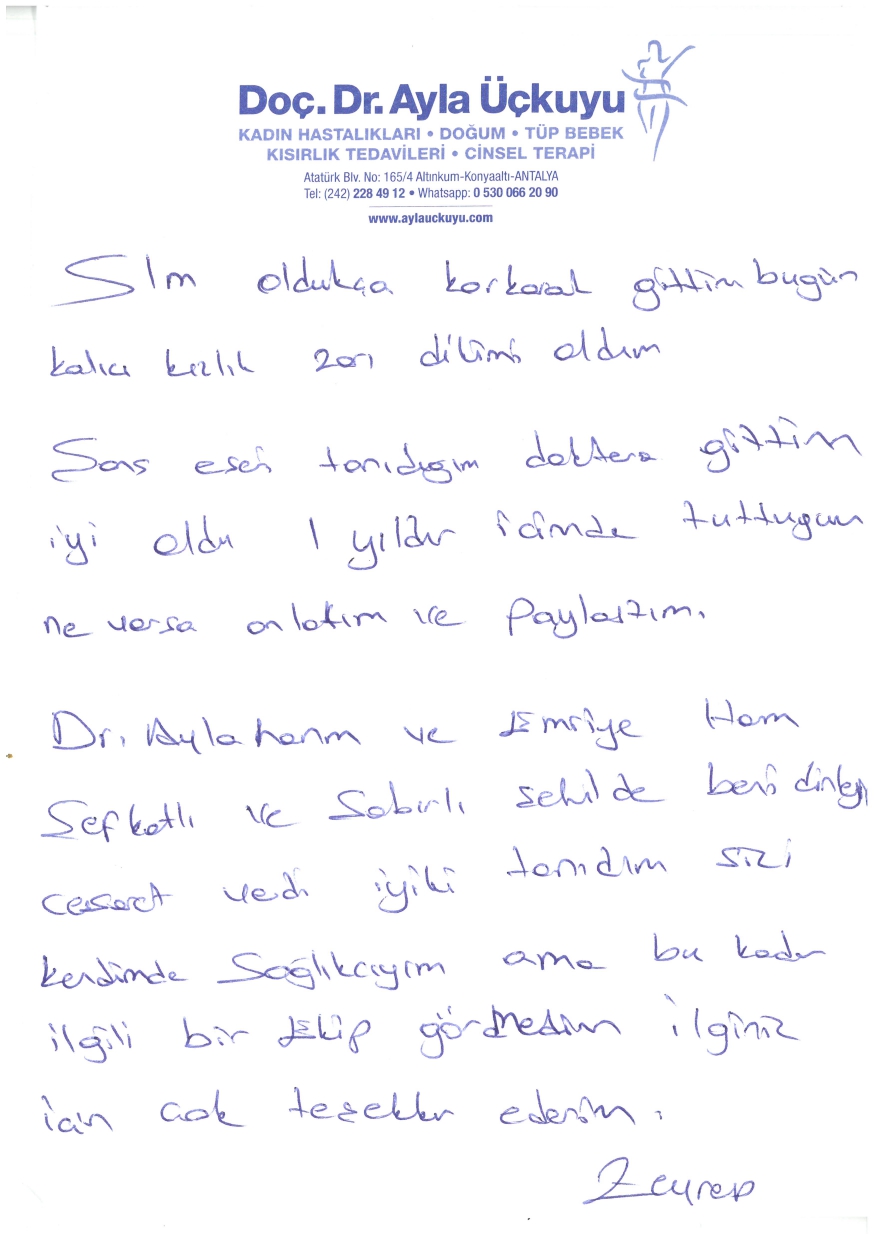 Doç. Dr. Ayla Üçkuyu
KADIN HASTALIKLARI • DOĞUM • TÜP BEBEK
KISIRLIK TEDAVİLERİ • CİNSEL TERAPİ
Atatürk Blv. No: 165/4 Altınkum-Konyaaltı-ANTALYA
Tel: (242) 228 49 12 • Whatsapp: 0 530 066 20 90
www.aylauckuyu.com
Slm oldukça korkarak gittim bugün
kalıcı kızlık zarı dilimi oldum
Sans eseri tanıdıgım doktera gittim
iyi oldu 1 yıldır icimde tuttugum
ne varsa anlatım ve Paylastım.
Dr. Ayla hanm ve Emriye Hanm
Sefkatlı ve Sabırlı sekilde beni dinleyi
cesaret verdi iyiki tanıdım sizi
kendimde Sağlıkcıyım ama bu kadar
ilgili bir Ekip görmedim ilginiz
icin cok tesekkr ederim.
Zeynep